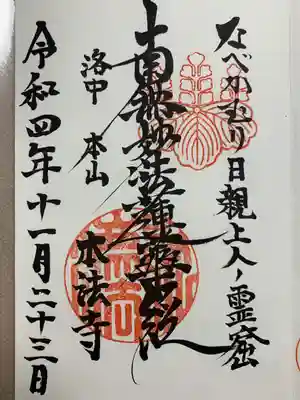 なべかむり日親上人ノ霊窟
南無妙法蓮華経
洛中 本山 本法寺
令和四年十一月二十三日